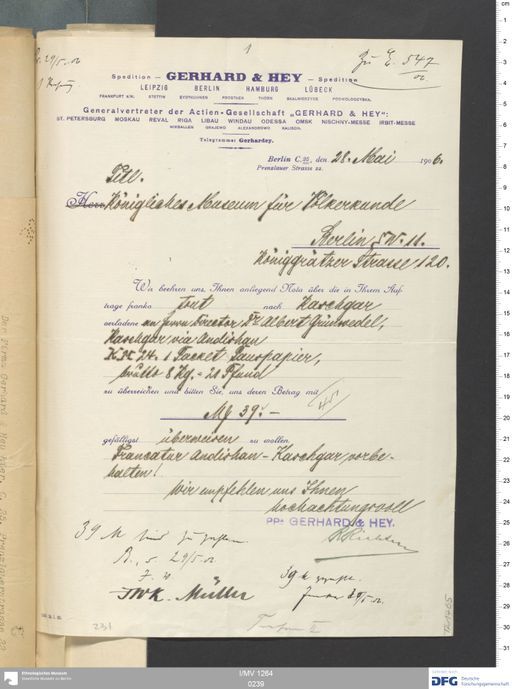 1
Zu E. 547/06
Spedition — GERHARD & HEY — Spedition
LEIPZIG BERLIN HAMBURG LÜBECK
FRANKFURT A/M. STETTIN EYDTKUHNEN PROSTKEN THORN SKALMIERZYCE PODWOLOCZYSKA.
Generalvertreter der Actien-Gesellschaft „GERHARD & HEY“:
ST. PETERSBURG MOSKAU REVAL RIGA LIBAU WINDAU ODESSA OMSK NISCHNY-MESSE IRBIT-MESSE
WIRBALLEN GRAJEWO ALEXANDROWO KALISCH.
Telegramme: Gerhardey.
Berlin C. 25, den 28. Mai 1906.
Prenzlauer Strasse 22.
Titl.
Herrn Königliches Museum für Völkerkunde
Berlin SW. 11.
Königgrätzer Strasse 120.
Wir beehren uns, Ihnen anliegend Nota über die in Ihrem Auf-
trage franko tout nach Kaschgar
verladene an Herrn Director Dr. Albert Grünwedel,
Kaschgar via Andishan
1 Packet Pauspapier,
brutto 8 Kg. = 20 Pfund
zu überreichen und bitten Sie, uns deren Betrag mit
Mk 39.—
gefälligst überweisen zu wollen
Francatur Andishan - Kaschgar vorbe-
halten!
Wir empfehlen uns Ihnen
hochachtungsvoll
PPA GERHARD & HEY.
39 M sind zu zahlen
29/5. 06
Müller
39 M
29/5. 06
231
I/MV 1264
0239
Ethnologisches Museum
Staatliche Museen zu Berlin
DFG Deutsche
Forschungsgemeinschaft